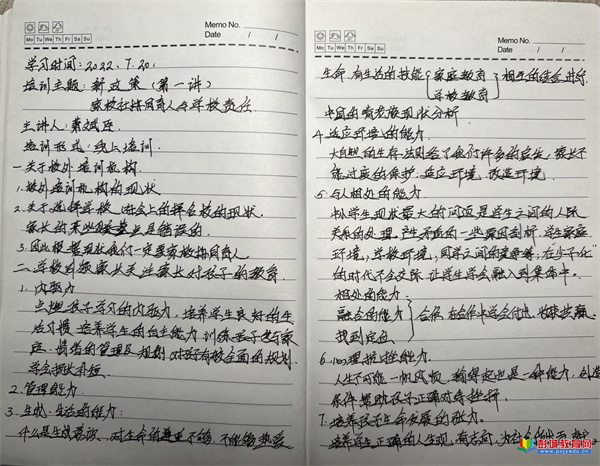 Memo No.
Mo Tu We Th Fr Sa Su
Date / /
学习时间:2022.7.20.
培训主题:新政策(第一讲)
家校社协同育人与学校责任
主讲人:
培训形式:线上培训.
一.关于校外培训机构.
1.校外培训机构的现状
2.关于选择学校,社会上的择名校的现状.
家长的
是错误的
3.因此根据现状我们一定要家校协同育人.
二.学校引领家长关注家长对孩子的教育.
1.内驱力
点燃孩子学习的内驱力,培养学生良好的生
活习惯,培养学生的自主能力,训练孩子进行家
庭.情绪的管理及规划,对所有校全面的规划.
学会扬长补短.
2.管理能力
3.生命.生活的能力:
什么是生命意识,对生命的尊重不够,不能够热爱
Memo No.
Mo Tu We Th Fr Sa Su
Date / /
生命,有生活的技能 家庭教育 学校教育 相互的结合进行.
中国的
现状分析
4.适应环境的能力.
大自然的生存法则给了我们许多的启发,家长不
能过度的保护.适应环境,改造环境.
5.与人相处的能力.
中小学生现状最大的问题是学生之间的人际
关系的处理,产生矛盾的一些原因剖析.学生家庭
环境,学校环境,同学之间的
在"少子化"
的时代不会交际,让学生学会融入到集体中.
相处的能力
融合的能力 合作,在合作中学会付出,收获共赢.
找到定位
6.心理抗挫能力.
人生不可能一帆风顺,输得起也是一种能力,创造
条件帮助孩子正确对待挫折.
7.培养孩子生命发展的能力.
培养学生正确的人生观,有志向,为社会
彭城教育网
www.pcjyxy.cn